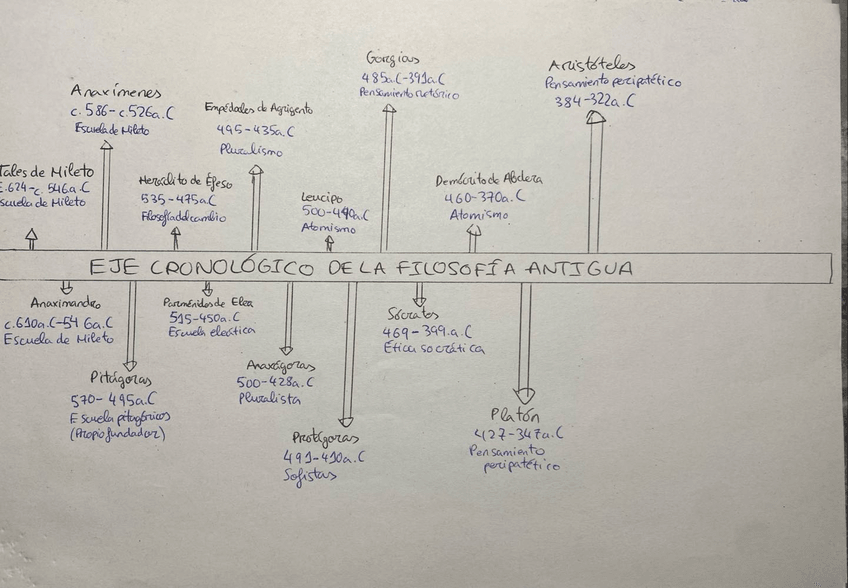 Gorgias
485a.C-391a.C
Pensamiento retórico
Aristóteles
Pensamiento peripatético
384-322a.C
Anaxímenes
c.586-c.526a.C
Escuela de Mileto
Empédocles de Agrigento
495-435a.C
Pluralismo
Tales de Mileto
c.624-c.546a.C
Escuela de Mileto
Heráclito de Éfeso
535-475a.C
Filosofía del cambio
Leucipo
500-440a.C
Atomismo
Demócrito de Abdera
460-370a.C
Atomismo
EJE CRONOLÓGICO DE LA FILOSOFÍA ANTIGUA
Anaximandro
c.610a.C-546a.C
Escuela de Mileto
Parménides de Elea
515-450a.C
Escuela eleática
Sócrates
469-399.a.C
Ética socrática
Pitágoras
570-495a.C
Escuela pitagóricos
(Propio fundador)
Anaxágoras
500-428a.C
Pluralista
Protágoras
491-410a.C
Sofistas
Platón
427-347a.C
Pensamiento
peripatético